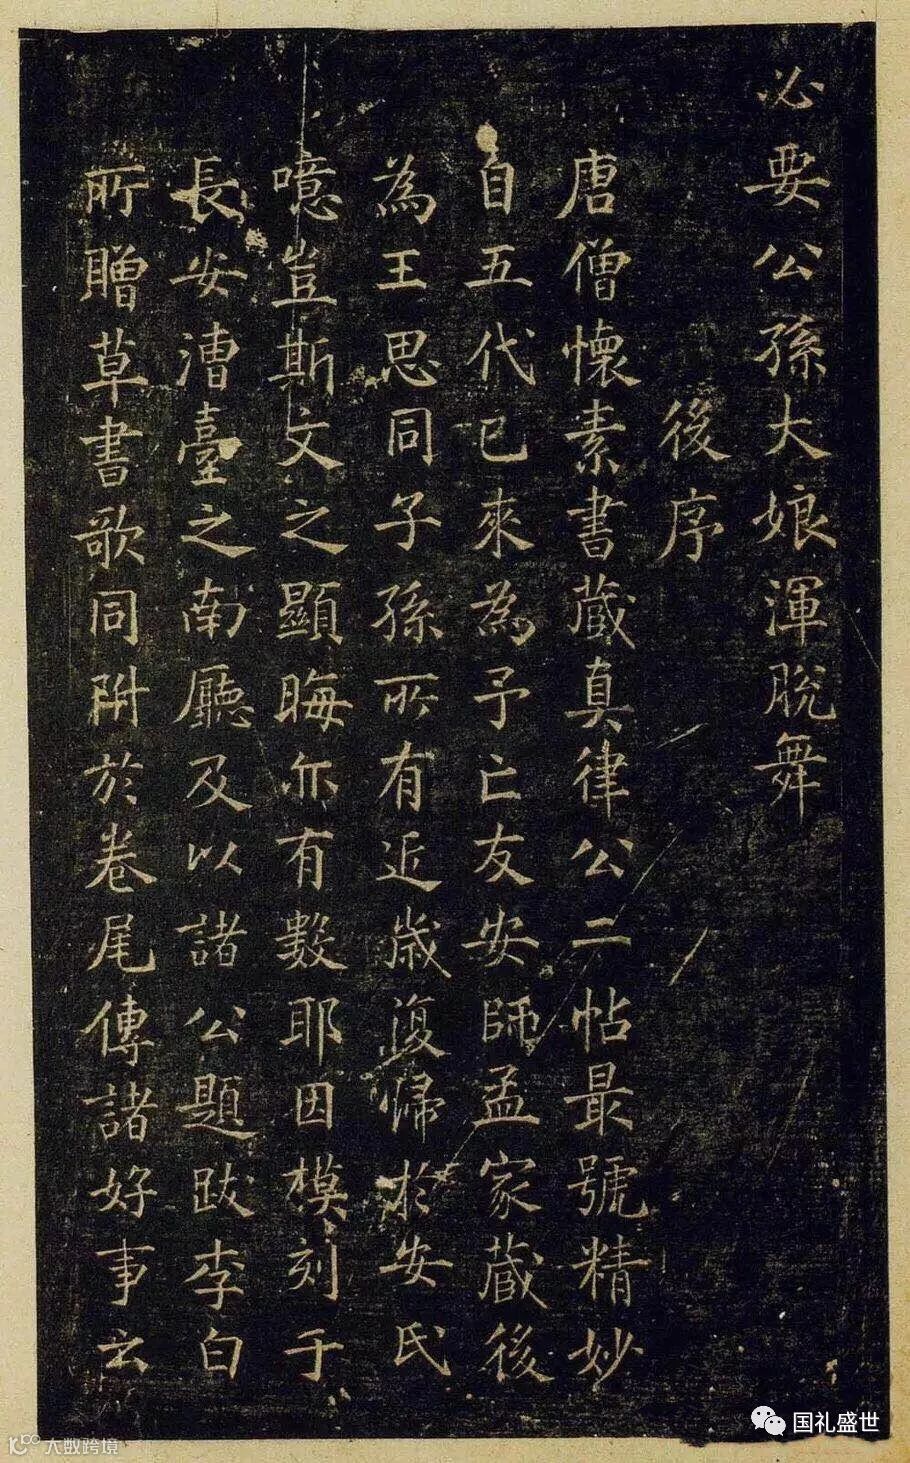 必要公孫大娘渾脫舞
後序
唐僧懷素書藏真律公二帖最號精妙
自五代已來為予亡友安師孟家藏後
為王思同子孫所有近歲復歸於安氏
噫豈斯文之顯晦亦有數耶因模刻于
長安漕臺之南廳及以諸公題跋李白
所贈草書歌同附於卷尾傳諸好事云
国礼盛世
大数跨境